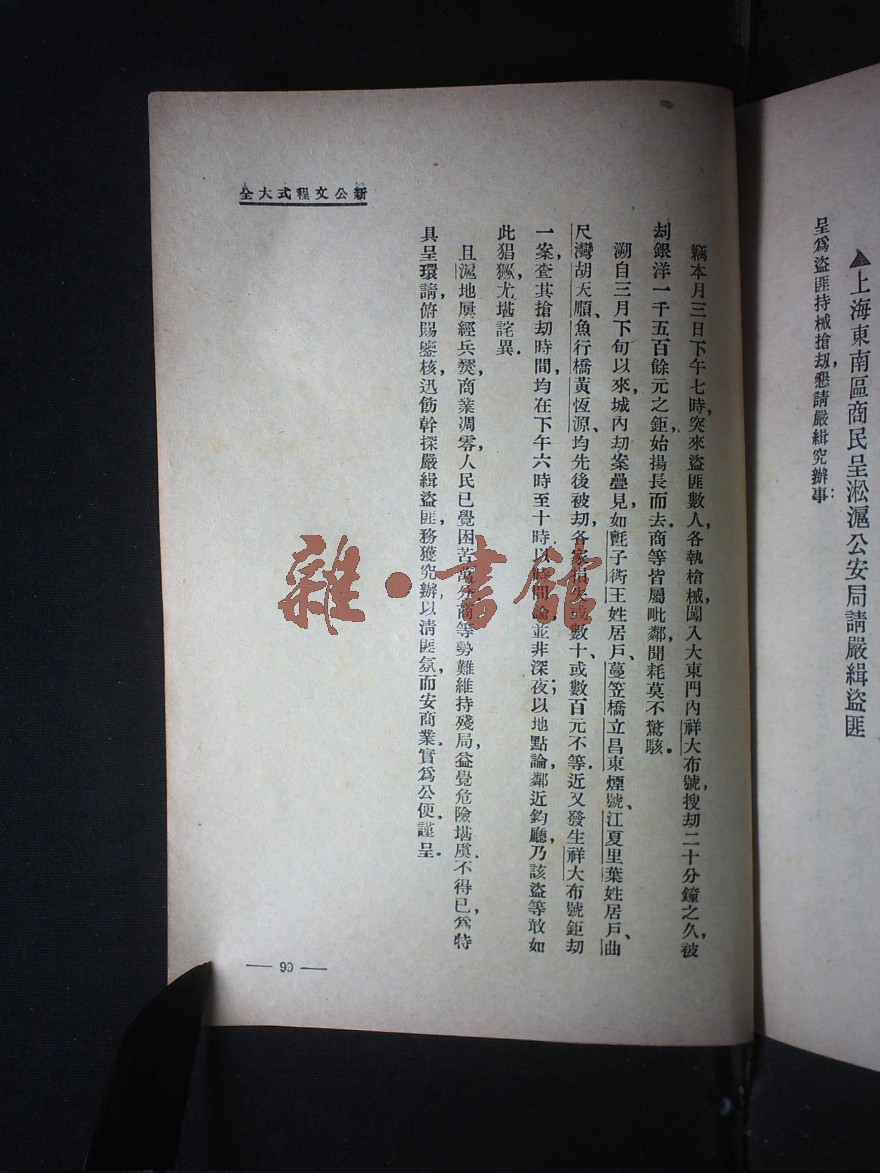 ▲上海東南區商民呈淞滬公安局請嚴緝盜匪
呈爲盜匪持械搶刼，懇請嚴緝究辦事：
新公文程式大全
竊本月三日下午七時，突來盜匪數人，各執槍械，闖入大東門內祥大布號，搜刼二十分鐘之久，被
刼銀洋一千五百餘元之鉅，始揚長而去．商等皆屬毗鄰，聞耗莫不驚咳。
溯自三月下旬以來，城內刼案疊見，如氈子衖王姓居戶、蔓笠橋立昌東煙號、江夏里葉姓居戶、曲
尺灣胡天順、魚行橋黃恆源、均先後被刼，各家損失或數十、或數百元不等．近又發生祥大布號鉅刼
一案，查其搶刼時間，均在下午六時至十時．以時間論，並非深夜；以地點論，鄰近鈞廳，乃該盜等敢如
此猖獗，尤堪詫異．
且滬地屢經兵燹，商業凋零，人民已覺困苦萬分，商等勢難維持殘局，益覺危險堪虞．不得已，爲特
具呈環請，俯賜鑒核，迅飭幹探嚴緝盜匪，務獲究辦，以清匪氛，而安商業，實爲公便．謹呈．
— 90 —
雜·書館